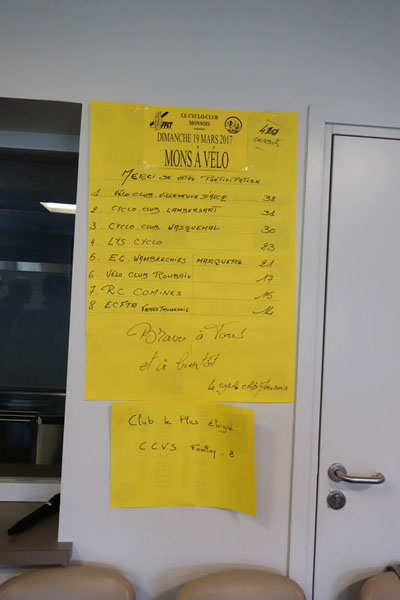 LE CYCLO-CLUB
MONSOIS
DIMANCHE 19 MARS 2017
MONS À VÉLO
420
MERCI DE VOTRE PARTICIPATION
1. VÉLO CLUB VILLENEUVE D'ASCQ 38
2 CYCLO CLUB LAMBERSART 31
3. CYCLO CLUB WASQUEHAL 30
4. LYS CYCLO 23
5. E.C. WAMBRECHIES MARQUETTE 21
6. VÉLO CLUB ROUBAIX 17
7 R.C COMINES 15
8. ECFTR
Bravo à Tous
et à bientôt
Club le Plus éloigné
C.C.V.S Fouilloy. 8